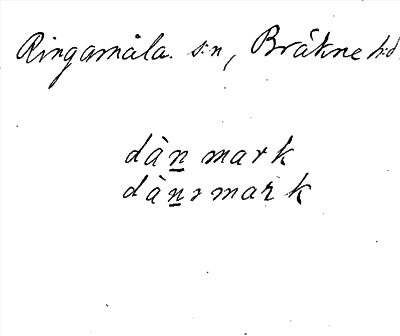 Ringamåla s:n, Bräkne h:d
dàn̲mark
dàn̲ɔmark